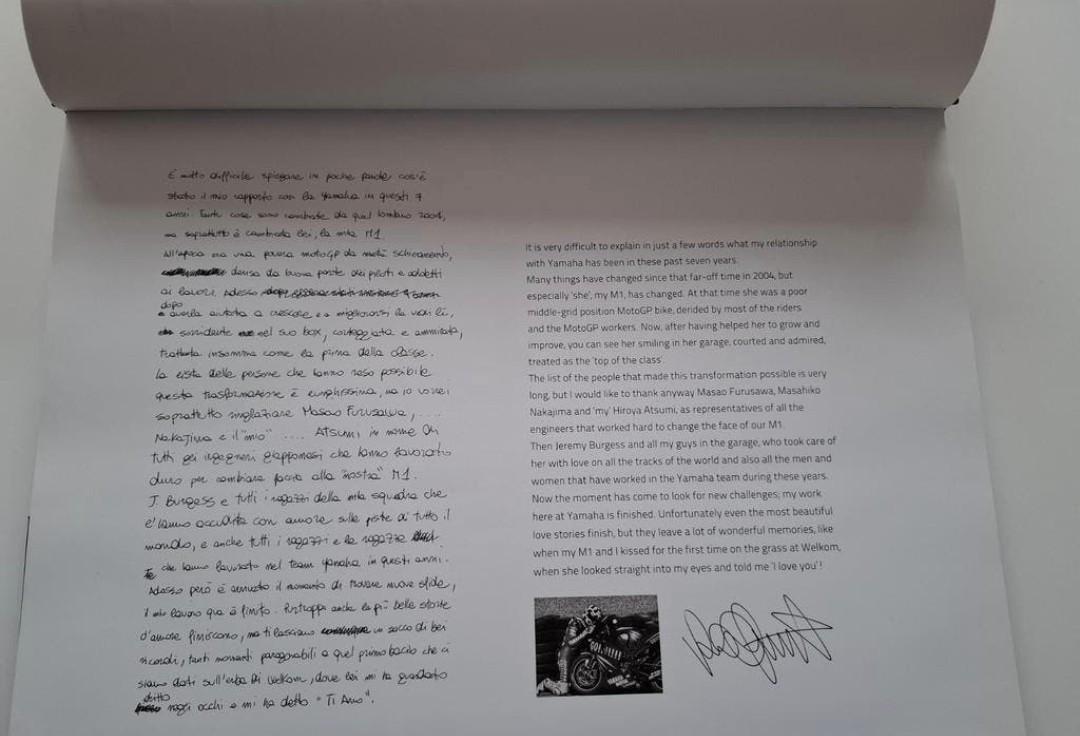 È molto difficile spiegare in poche parole cos'è
stato il mio rapporto con la Yamaha in questi 7
anni. Tante cose sono cambiate da quel lontano 2004,
ma soprattutto è cambiata lei, la mia M1.
All'epoca era una povera motoGP da metà schieramento,
derisa da buona parte dei piloti e addetti
ai lavori. Adesso
dopo
averla aiutata a crescere e a migliorarsi la vedi lì,
sorridente nel suo box, corteggiata e ammirata,
trattata insomma come la prima della classe.
La lista delle persone che hanno reso possibile
questa trasformazione è lunghissima, ma io vorrei
soprattutto ringraziare Masao Furusawa, ....
Nakajima e il "mio" .... Atsumi in nome di
tutti gli ingegneri giapponesi che hanno lavorato
duro per cambiare faccia alla "nostra" M1.
J. Burgess e tutti i ragazzi della mia squadra che
l'hanno accudita con amore sulle piste di tutto il
mondo, e anche tutti i ragazzi e le ragazze
che hanno lavorato nel team Yamaha in questi anni.
Adesso però è arrivato il momento di trovare nuove sfide,
il mio lavoro qua è finito. Purtroppo anche le più belle storie
d'amore finiscono, ma ti lasciano un sacco di bei
ricordi, tanti momenti paragonabili a quel primo bacio che ci
siamo dati sull'erba di Welkom, dove lei mi ha guardato
dritto
negli occhi e mi ha detto "Ti Amo".
It is very difficult to explain in just a few words what my relationship
with Yamaha has been in these past seven years.
Many things have changed since that far-off time in 2004, but
especially 'she', my M1, has changed. At that time she was a poor
middle-grid position MotoGP bike, derided by most of the riders
and the MotoGP workers. Now, after having helped her to grow and
improve, you can see her smiling in her garage, courted and admired,
treated as the 'top of the class'.
The list of the people that made this transformation possible is very
long, but I would like to thank anyway Masao Furusawa, Masahiko
Nakajima and 'my' Hiroya Atsumi, as representatives of all the
engineers that worked hard to change the face of our M1.
Then Jeremy Burgess and all my guys in the garage, who took care of
her with love on all the tracks of the world and also all the men and
women that have worked in the Yamaha team during these years.
Now the moment has come to look for new challenges; my work
here at Yamaha is finished. Unfortunately even the most beautiful
love stories finish, but they leave a lot of wonderful memories, like
when my M1 and I kissed for the first time on the grass at Welkom,
when she looked straight into my eyes and told me 'I love you'!